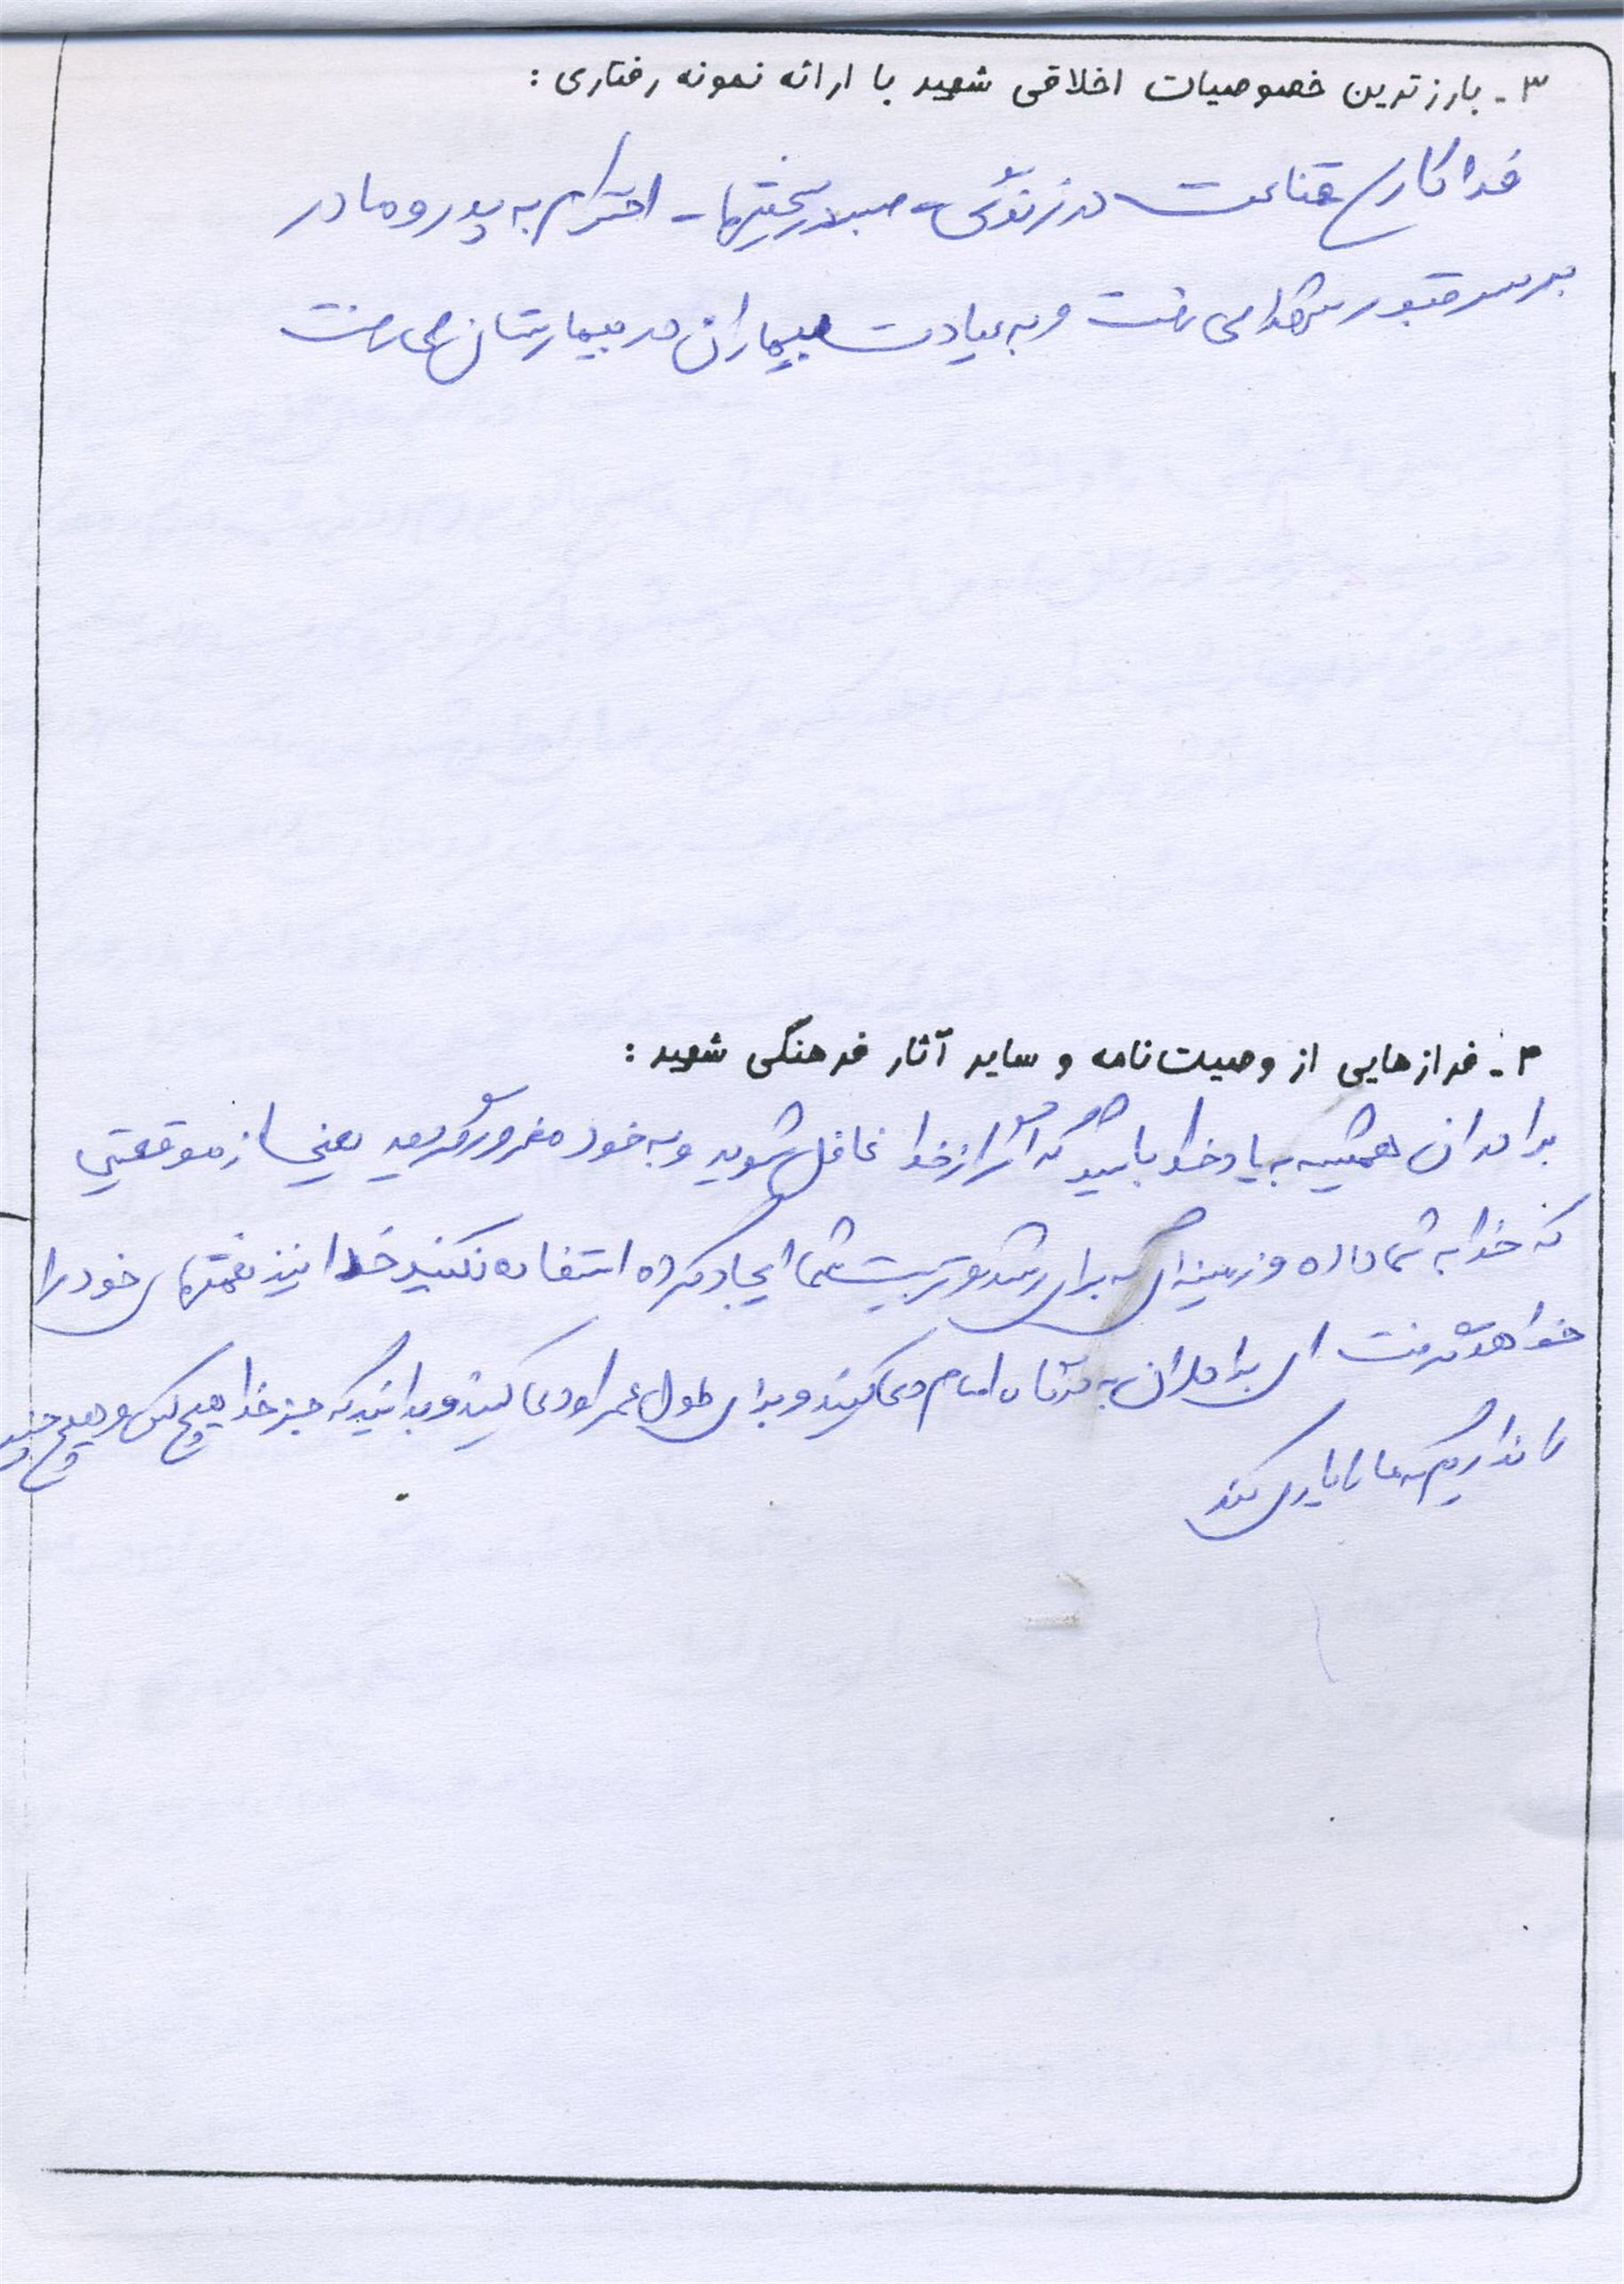 ۳- بارزترین خصوصیات اخلاقی شهید با ارائه نمونه رفتاری :
فداکاری قناعت در زندگی - صبر در سختیها - احترام به پدر و مادر
بر سر قبور شهدا می رفت و به عیادت بیماران در بیمارستان می رفت
۴- فرازهایی از وصیت‌نامه و سایر آثار فرهنگی شهید :
برادران همیشه به یاد خدا باشید که اگر از خدا غافل شوید و به خود مغرور گردید یعنی از موقعیتی
که خدا به شما داده و زمینه ای که برای رشد و تربیت شما ایجاد کرده استفاده نکنید خدا نیز نعمتهای خود را
خواهد گرفت ای برادران به امام دعا کنید و برای طول عمر او دعا کنید و بدانید که جز خدا هیچ کس و هیچ چیز
را نداریم که ما را یاری کند